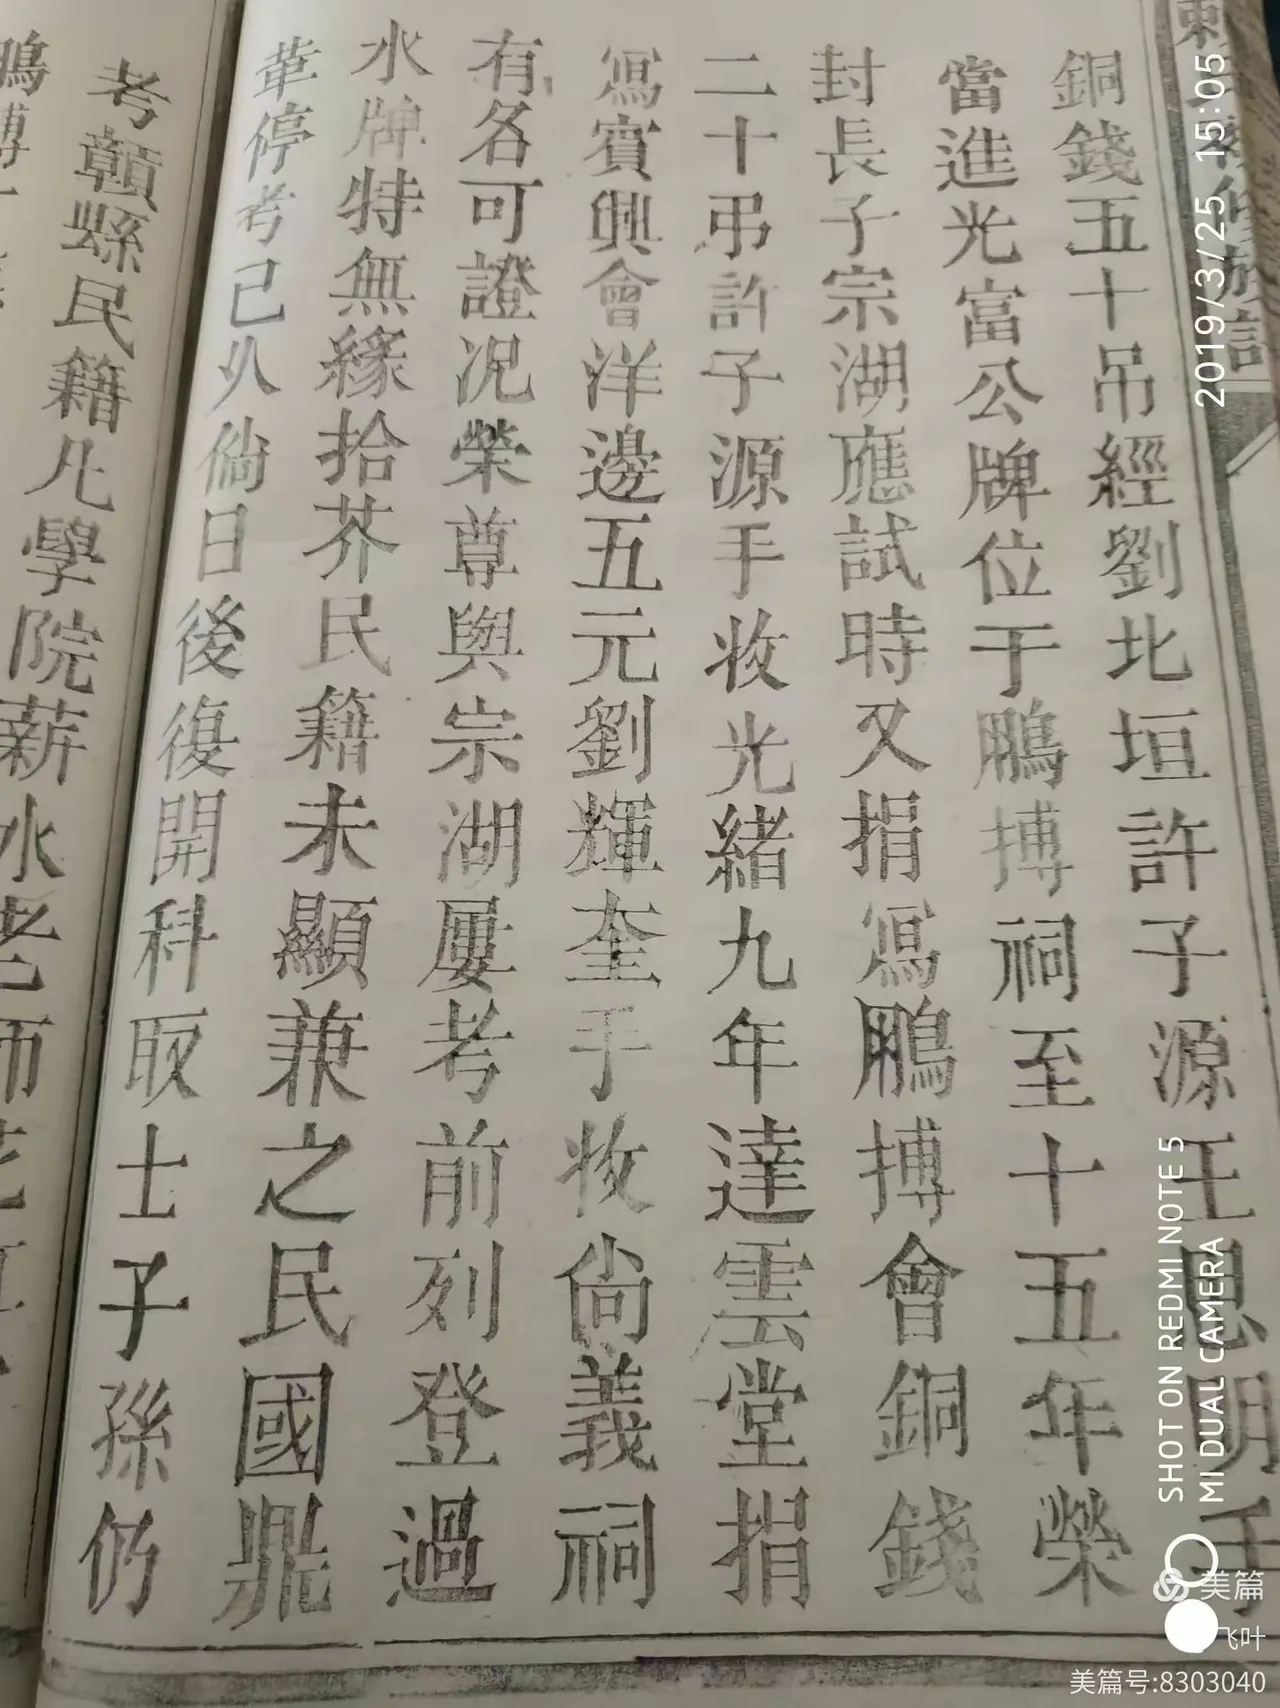 銅錢五十吊經劉北垣許子源王思明手
當進光富公牌位于鵬搏祠至十五年榮
封長子宗湖應試時又捐寫鵬搏會銅錢
二十弔許子源手收光緒九年達雲堂捐
寫賓興會洋邊五元劉輝奎手收尙義祠
有名可證况榮尊與宗湖屢考前列登過
水牌特無緣拾芥民籍未顯兼之民國鼎
革停考已久倘日後復開科取士子孫仍
考贛縣民籍凡學院薪水老師
鵬搏
2019/3/25 15:05
SHOT ON REDMI NOTE 5
MI DUAL CAMERA
美篇
飞叶
美篇号:8303040